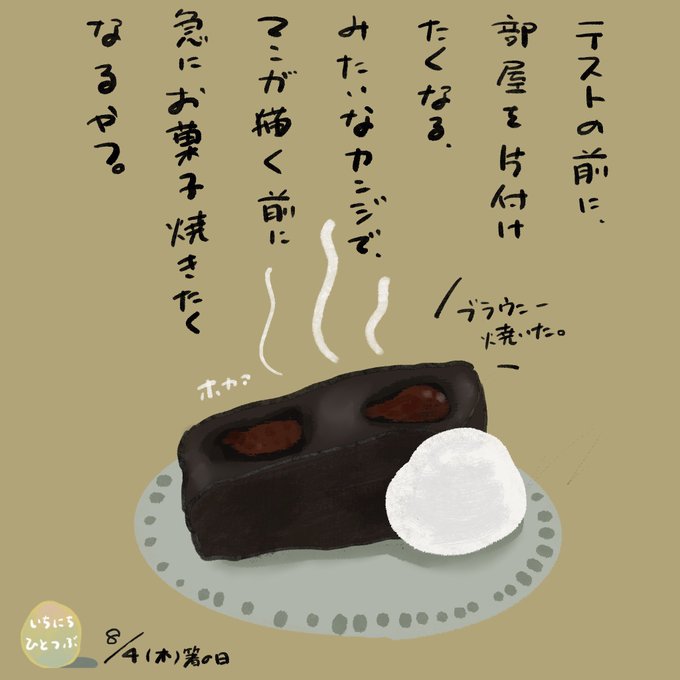 テストの前に、
部屋を片付け
たくなる、
みたいなカンジで、
マンガ描く前に
急にお菓子焼きたく
なるやつ。
ブラウニー
焼いた。
ホカ?
いちにち
ひとつぶ
8/4(木)箸の日